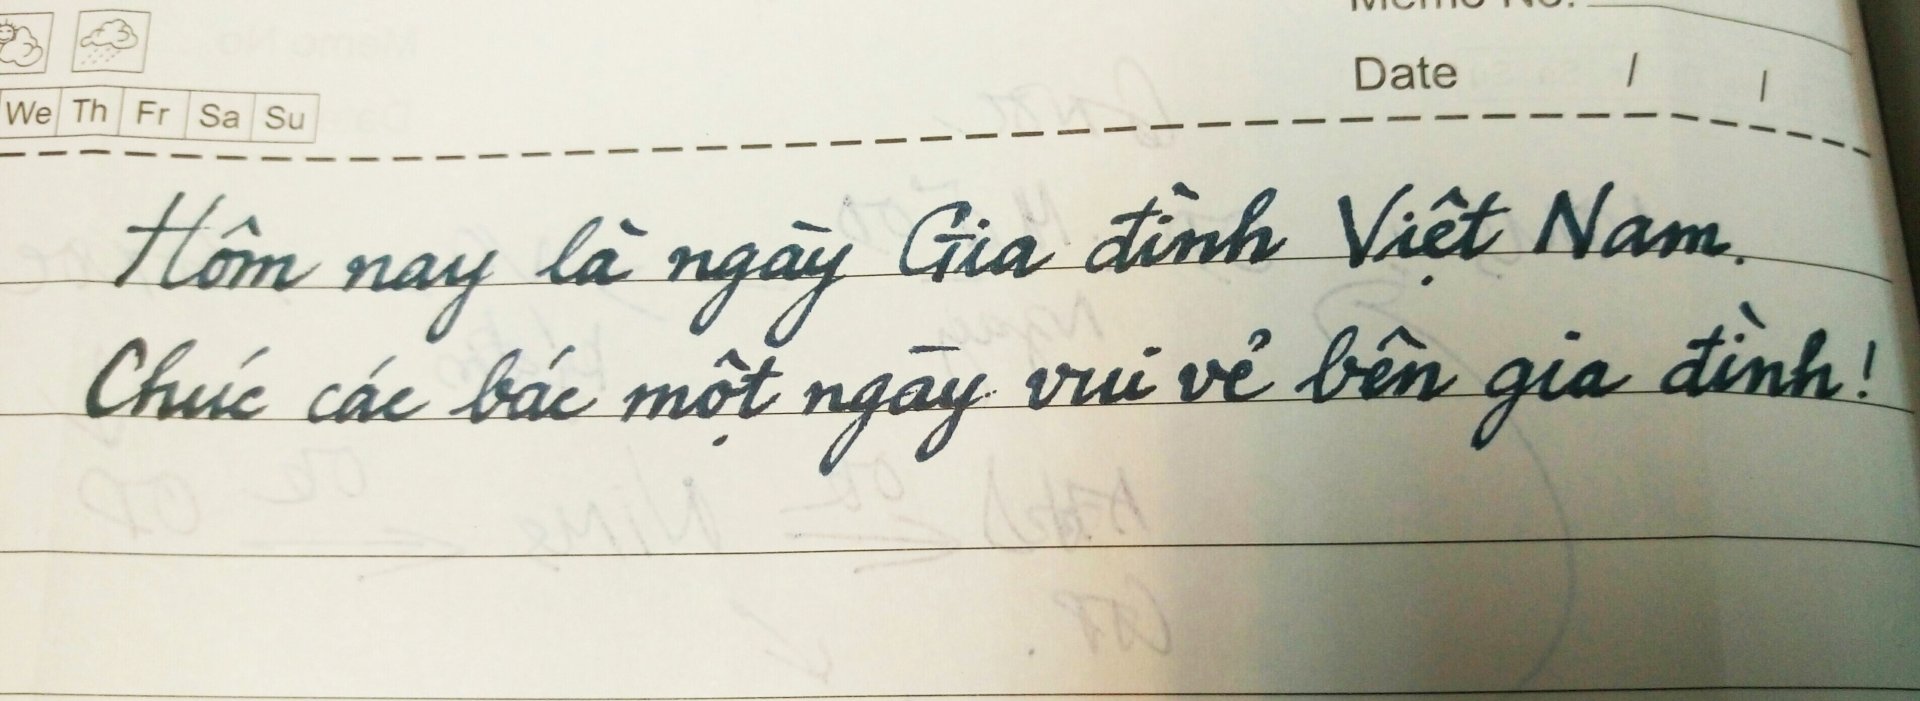 Memo No.
Date / /
We Th Fr Sa Su
Hôm nay là ngày Gia đình Việt Nam.
Chúc các bác một ngày vui vẻ bên gia đình!